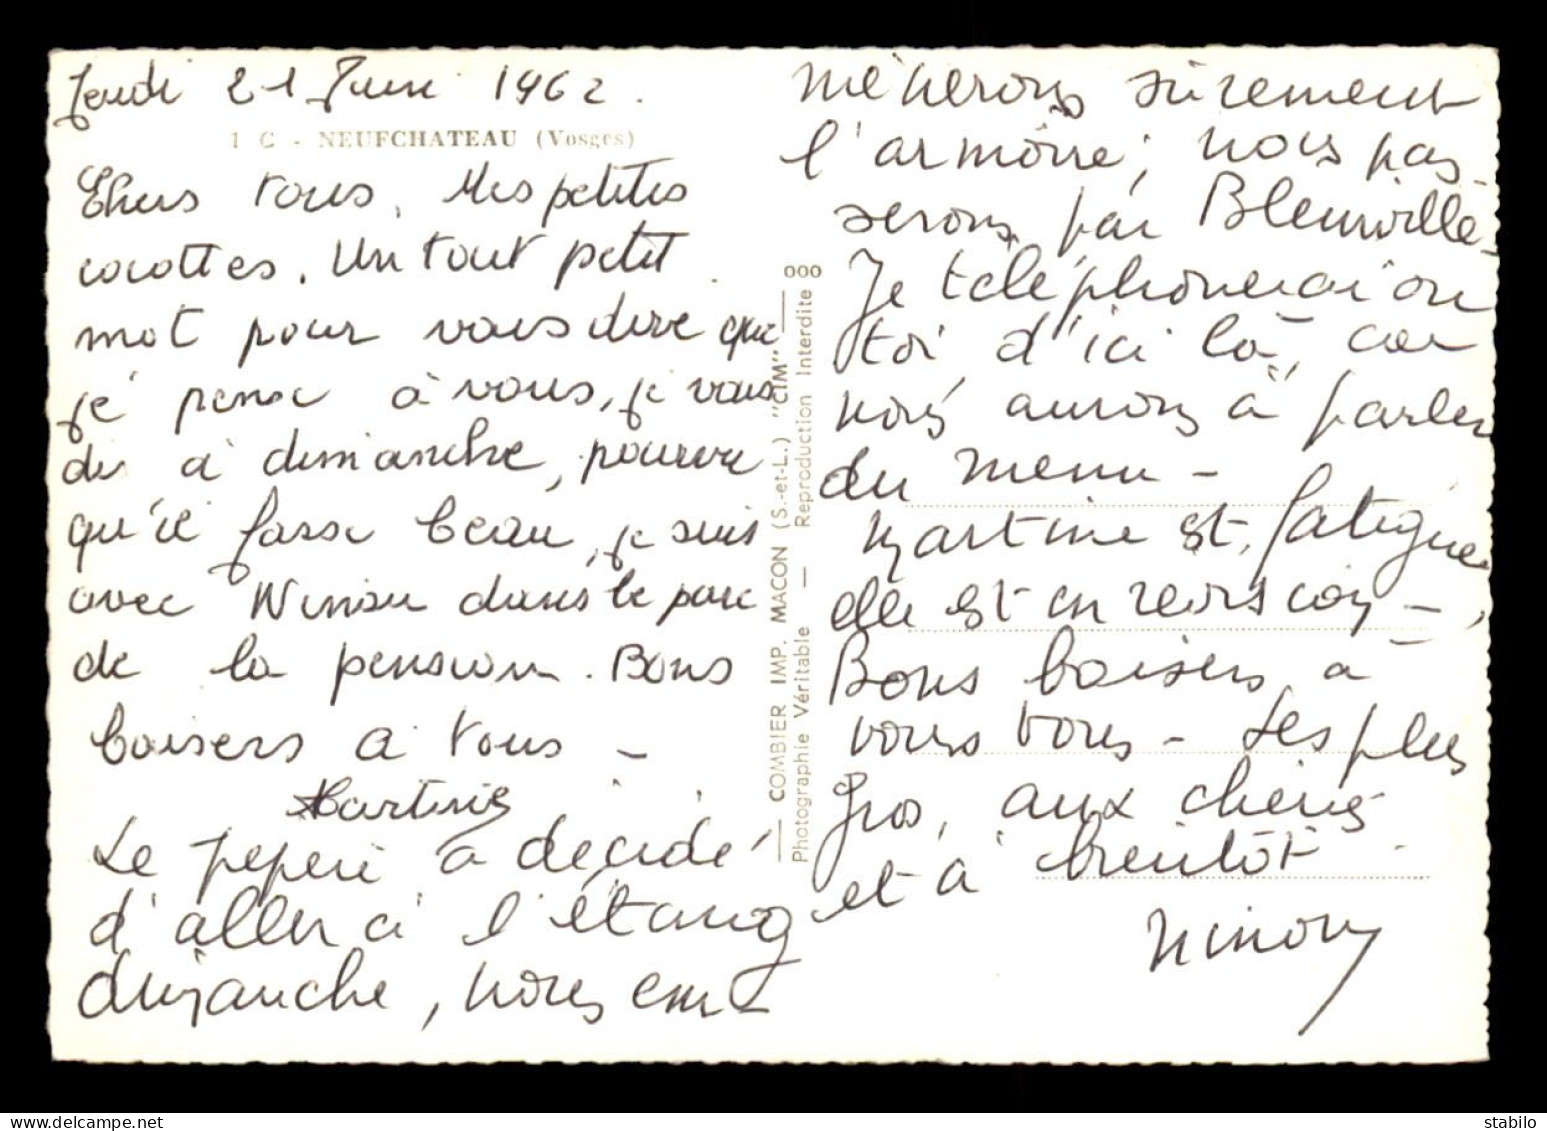 Jeudi 21 Juin 1962.
1 C - NEUFCHATEAU (Vosges)
Chers tous, Mes petites
cocottes. Un tout petit
mot pour vous dire que
je pense à vous, je vous
dis à dimanche, pourvu
qu'il fasse beau, je suis
avec Ninon dans le parc
de la pension. Bons
baisers à tous -
Martine
Le pépère a décidé
d'aller à l'étang
dimanche, nous em-
mènerons sûrement
l'armoire; nous pas-
serons par Bleurville -
Je téléphonerai ou
toi d'ici là, car
nous aurons à parler
du menu -
Martine est fatiguée
elle est en révision -
Bons baisers à
vous tous - Les plus
gros, aux chéries
et à bientôt.
Ninon
COMBIER IMP. MACON (S.-et-L.) "CIM"
Photographie Véritable — Reproduction Interdite
000
delcampe.net
stockcards